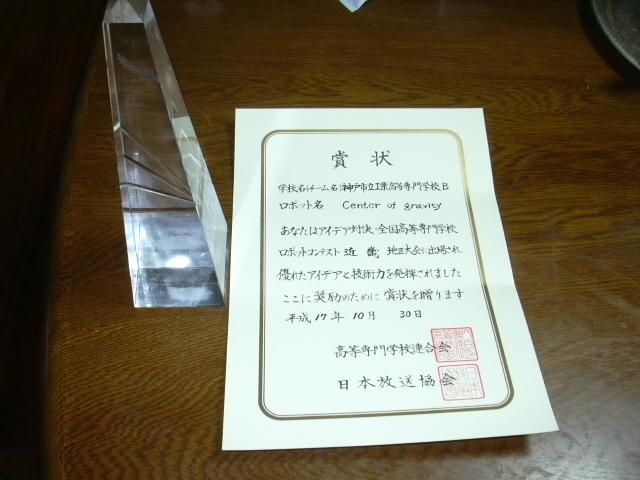 賞状
学校名(チーム名)神戸市立工業高等専門学校B
ロボット名 Center of gravity
あなたはアイデア対決・全国高等専門学校
ロボットコンテスト 近畿 地区大会に出場され
優れたアイデアと技術力を発揮されました
ここに奨励のために賞状を贈ります
平成17年10月 30日
高等専門学校連合会
日本放送協会